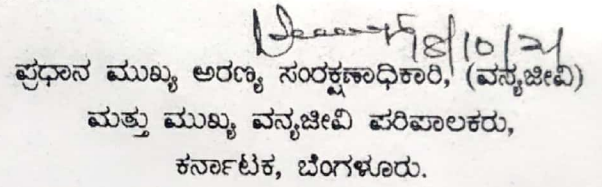 18/10/21
ಪ್ರಧಾನ ಮುಖ್ಯ ಅರಣ್ಯ ಸಂರಕ್ಷಣಾಧಿಕಾರಿ, (ವನ್ಯಜೀವಿ)
ಮತ್ತು ಮುಖ್ಯ ವನ್ಯಜೀವಿ ಪರಿಪಾಲಕರು,
ಕರ್ನಾಟಕ, ಬೆಂಗಳೂರು.